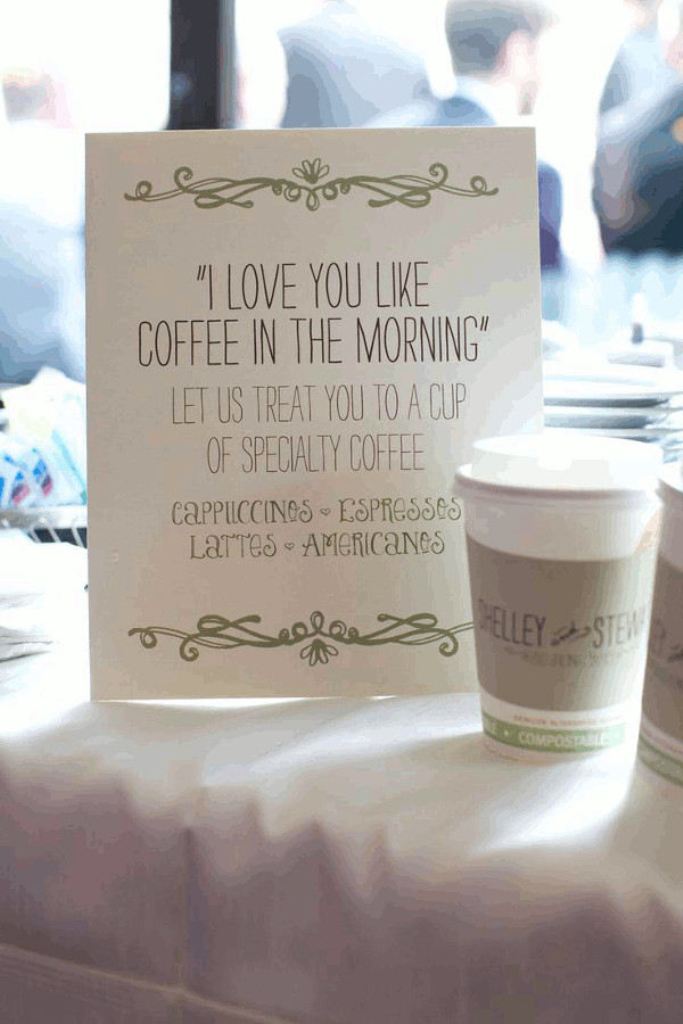 "I LOVE YOU LIKE
COFFEE IN THE MORNING"
LET US TREAT YOU TO A CUP
OF SPECIALTY COFFEE
CAPPUCCINOS ESPRESSOS
LATTES AMERICANOS
SHELLEY STEW
COMPOSTABLE